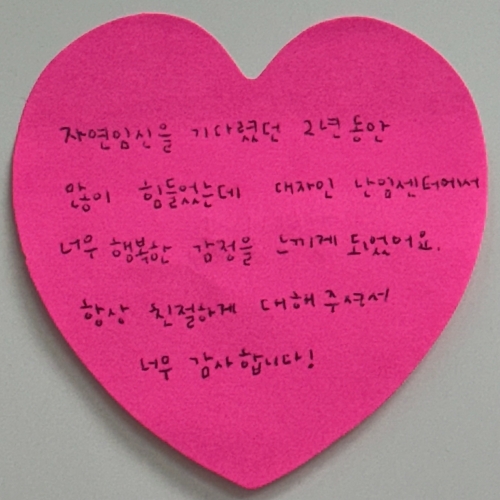 자연임신을 기다렸던 2년 동안
많이 힘들었는데 대자인 난임센터에서
너무 행복한 감정을 느끼게 되었어요.
항상 친절하게 대해주셔서
너무 감사합니다!